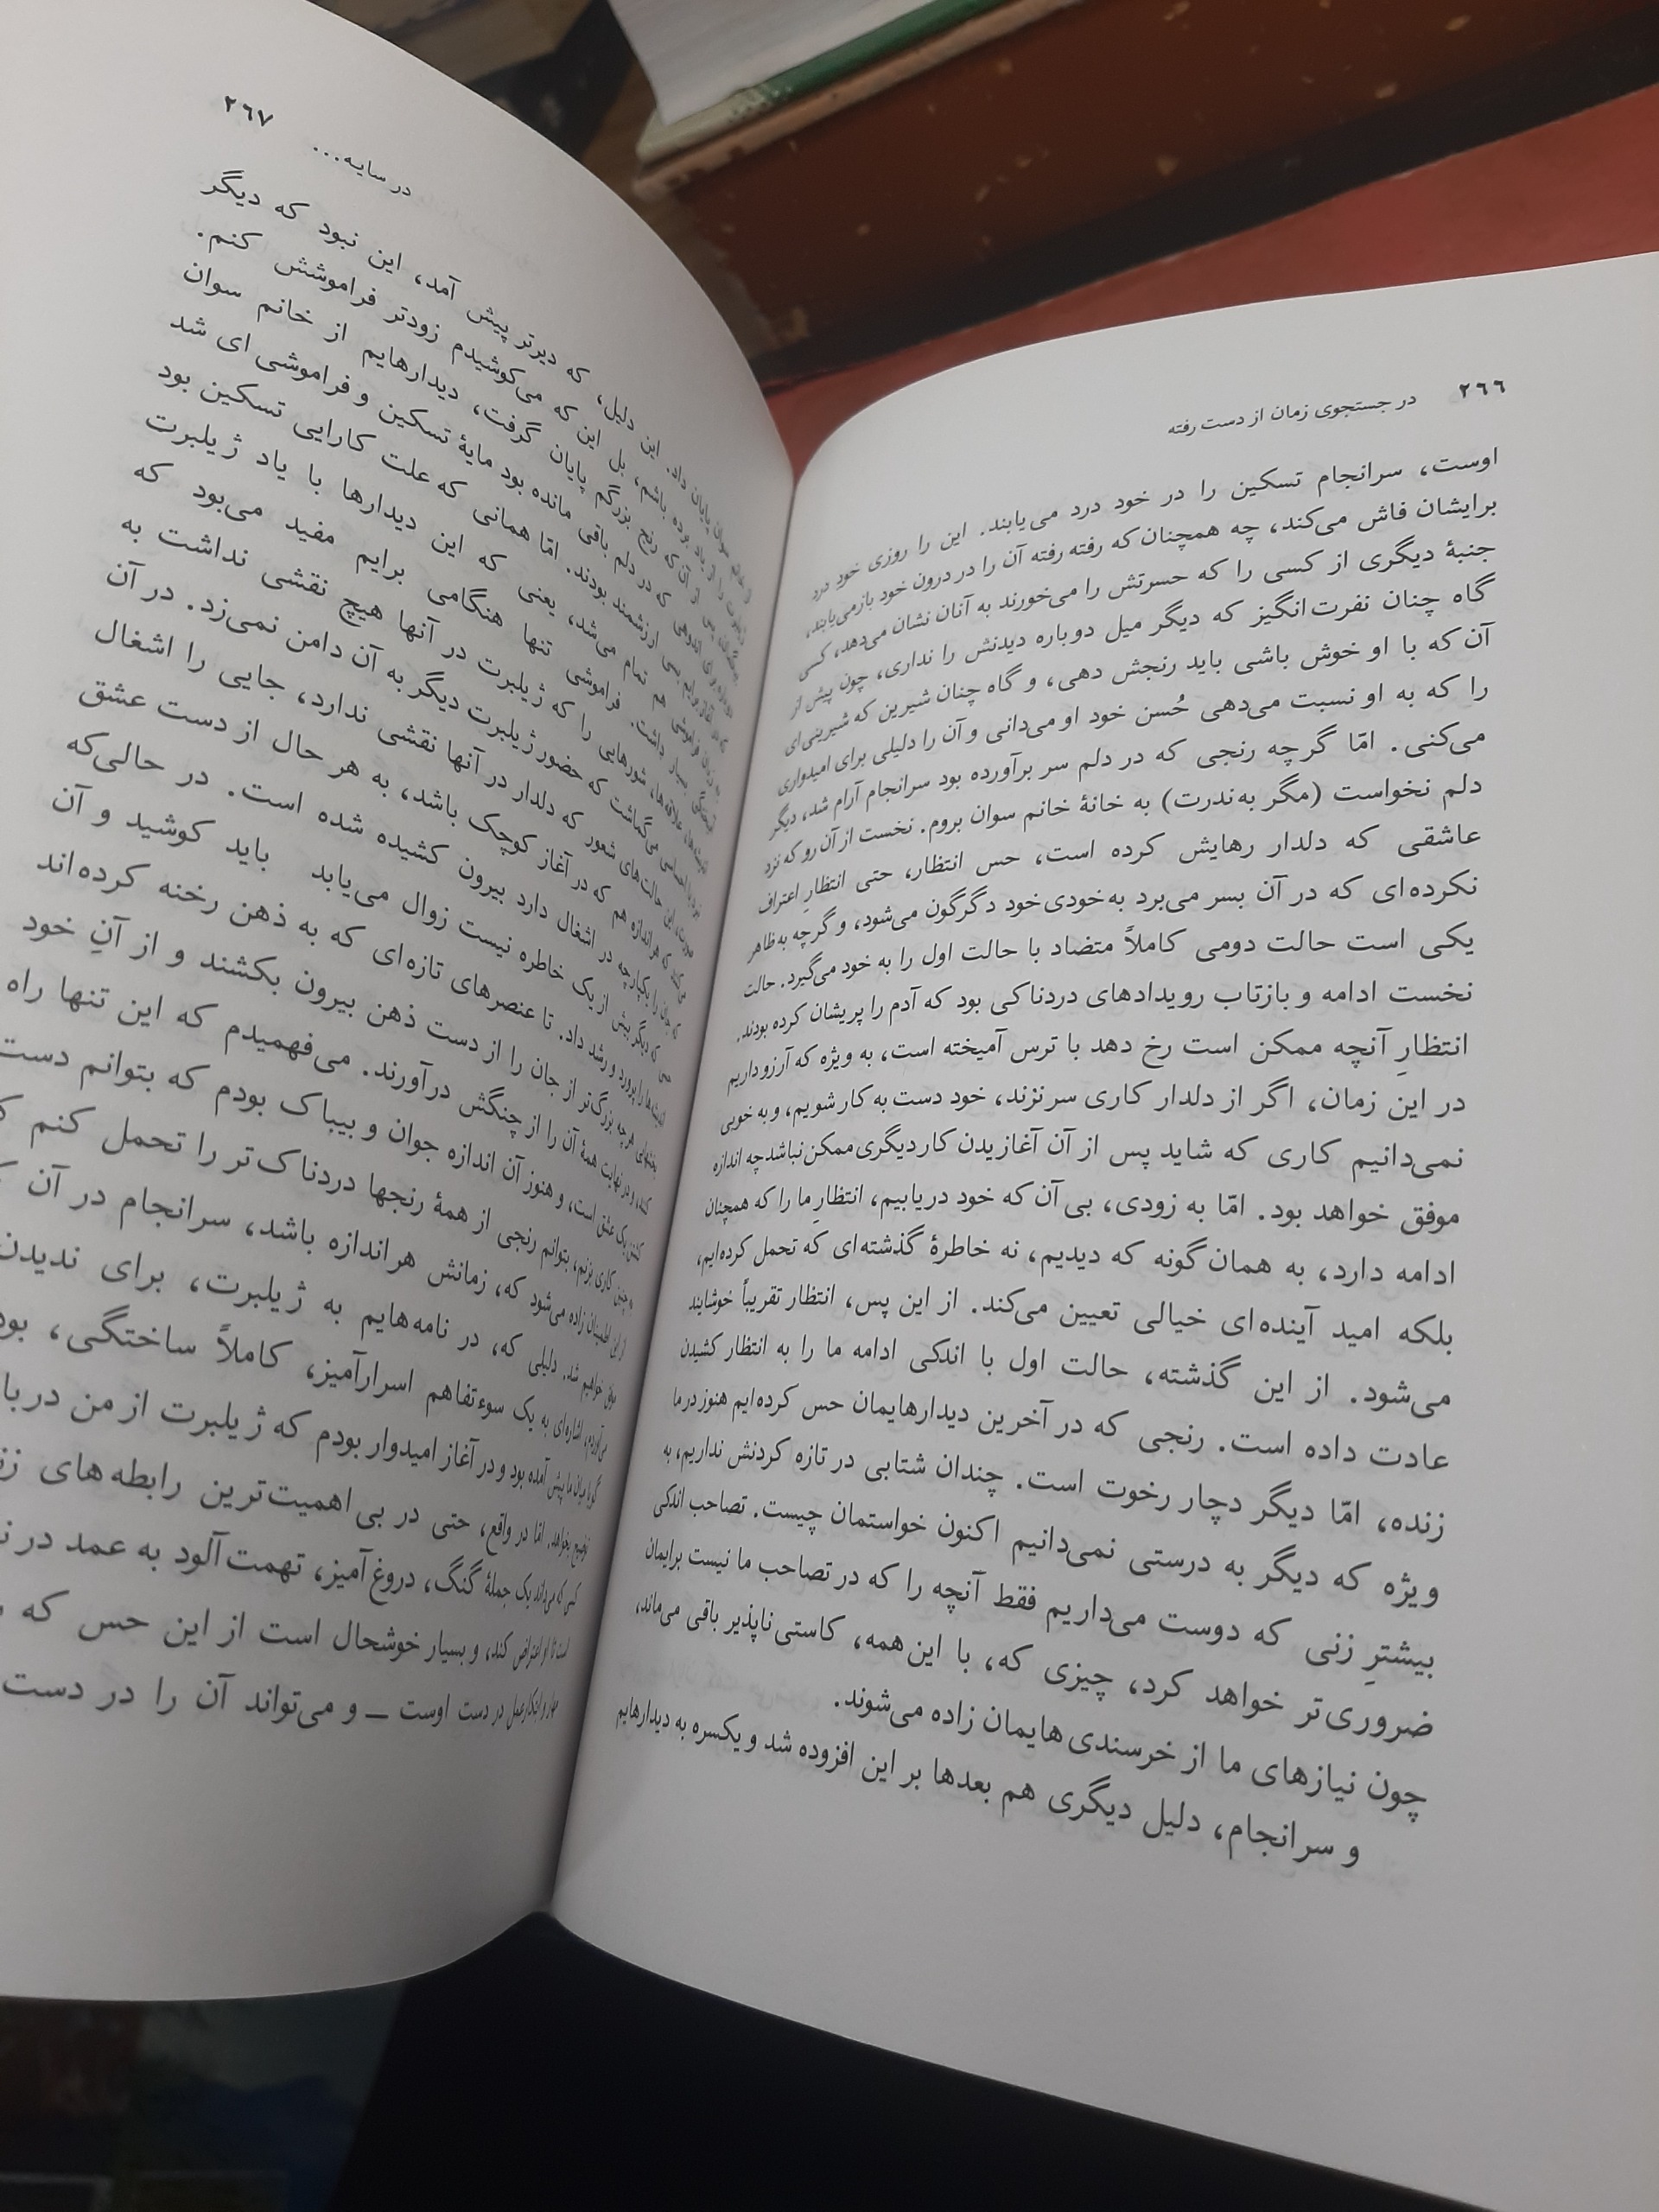 ۲۶۶ در جستجوی زمان از دست رفته
اوست، سرانجام تسکین را در خود درد می‌یابند. این را روزی خود درد
برایشان فاش می‌کند، چه همچنان‌که رفته رفته آن را در درون خود بازمی‌یابند،
جنبهٔ دیگری از کسی را که حسرتش را می‌خورند به آنان نشان می‌دهد، کسی
گاه چنان نفرت‌انگیز که دیگر میل دوباره دیدنش را نداری، چون پیش از
آن که با او خوش باشی باید رنجش دهی، و گاه چنان شیرین که شیرینی‌ای
را که به او نسبت می‌دهی حُسن خود او می‌دانی و آن را دلیلی برای امیدواری
می‌کنی. امّا گرچه رنجی که در دلم سر برآورده بود سرانجام آرام شد، دیگر
دلم نخواست (مگر به‌ندرت) به خانهٔ خانم سوان بروم. نخست از آن رو که نزد
عاشقی که دلدار رهایش کرده است، حس انتظار، حتی انتظارِ اعتراف
نکرده‌ای که در آن بسر می‌برد به‌خودی‌خود دگرگون می‌شود، و گرچه به‌ظاهر
یکی است حالت دومی کاملاً متضاد با حالت اول را به خود می‌گیرد. حالت
نخست ادامه و بازتاب رویدادهای دردناکی بود که آدم را پریشان کرده بودند.
انتظارِ آنچه ممکن است رخ دهد با ترس آمیخته است، به ویژه که آرزو داریم
در این زمان، اگر از دلدار کاری سر نزند، خود دست به کار شویم، و به خوبی
نمی‌دانیم کاری که شاید پس از آن آغازیدن کار دیگری ممکن نباشد چه اندازه
موفق خواهد بود. امّا به زودی، بی آن که خود دریابیم، انتظارِ ما را که همچنان
ادامه دارد، به همان گونه که دیدیم، نه خاطرهٔ گذشته‌ای که تحمل کرده‌ایم،
بلکه امید آینده‌ای خیالی تعیین می‌کند. از این پس، انتظار تقریباً خوشایند
می‌شود. از این گذشته، حالت اول با اندکی ادامه ما را به انتظار کشیدن
عادت داده است. رنجی که در آخرین دیدارهایمان حس کرده‌ایم هنوز در ما
زنده، امّا دیگر دچار رخوت است. چندان شتابی در تازه کردنش نداریم، به
ویژه که دیگر به درستی نمی‌دانیم اکنون خواستمان چیست. تصاحب اندکی
بیشترِ زنی که دوست می‌داریم فقط آنچه را که در تصاحب ما نیست برایمان
ضروری‌تر خواهد کرد، چیزی که، با این‌همه، کاستی ناپذیر باقی می‌ماند،
چون نیازهای ما از خرسندی‌هایمان زاده می‌شوند.
و سرانجام، دلیل دیگری هم بعدها بر این افزوده شد و یکسره به دیدارهایم
در سایه... ۲۶۷
سوان پایان داد. این دلیل، که دیرتر پیش آمد، این نبود که دیگر
را از یاد برده باشم، بل این که می‌کوشیدم زودتر فراموشش کنم.
پس از آن که رنج بزرگم پایان گرفت، دیدارهایم از خانم سوان
که در دلم باقی مانده بود مایهٔ تسکین و فراموشی ای شد
ارزشمند بودند. امّا همانی که علت کارایی تسکین بود
هم تمام می‌شد، یعنی که این دیدارها با یاد ژیلبرت
داشت. فراموشی تنها هنگامی برایم مفید می‌بود که
علاقه‌ها، شورهایی را که ژیلبرت در آنها هیچ نقشی نداشت به
می‌گماشت که حضور ژیلبرت دیگر به آن دامن نمی‌زد. در آن
این حالت‌های شعور که دلدار در آنها نقشی ندارد، جایی را اشغال
که هر اندازه هم که در آغاز کوچک باشد، به هر حال از دست عشق
که جان را یکپارچه در اشغال دارد بیرون کشیده شده است. در حالی‌که
که دیگر بیش از یک خاطره نیست زوال می‌یابد باید کوشید و آن
را پرورد و رشد داد. تا عنصرهای تازه‌ای که به ذهن رخنه کرده‌اند
هرچه بزرگ‌تر از جان را از دست ذهن بیرون بکشند و از آنِ خود
کنند و در نهایت همهٔ آن را از چنگش درآورند. می‌فهمیدم که این تنها راه
کشتن یک عشق است، و هنوز آن اندازه جوان و بیباک بودم که بتوانم دست
چنین کاری بزنم، بتوانم رنجی از همهٔ رنجها دردناک‌تر را تحمل کنم
از این اطمینان زاده می‌شود که، زمانش هر اندازه باشد، سرانجام در آن
خواهیم شد. دلیلی که، در نامه‌هایم به ژیلبرت، برای ندیدن
می‌آوردم، اشاره‌ای به یک سوءتفاهم اسرارآمیز، کاملاً ساختگی، بود
گویا میان ما پیش آمده بود و در آغاز امیدوار بودم که ژیلبرت از من
توضیح بخواهد. امّا در واقع، حتی در بی اهمیت‌ترین رابطه‌های
کسی که می‌داند یک جملهٔ گنگ، دروغ‌آمیز، تهمت‌آلود به عمد در
است تا او اعتراض کند، و بسیار خوشحال است از این حس که
و ابتکار عمل در دست اوست ــ و می‌تواند آن را در دست